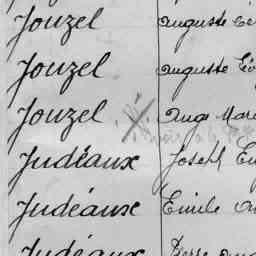 Jouzel Auguste
Jouzel Auguste
Jouzel Ange Mari
Judéaux Joseph
Judéaux Emile
Judéaux Pierre